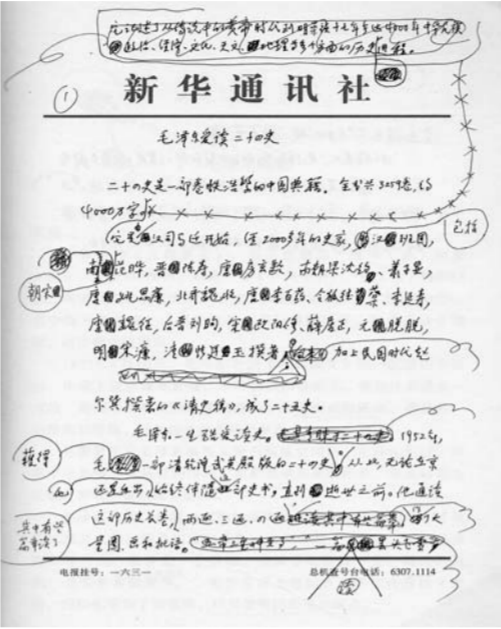 它记述了从传说中的黄帝时代到明崇祯十七年长达4000年中华民族
政治、经济、文化、天文、地理等各方面的历史进程。
①
新华通讯社
毛泽东爱读二十四史
二十四史是一部卷帙浩繁的中国典籍，全书共3259卷，约
4000万字，
它是由汉司马迁开始，经2000多年的史家，汉班固，
包括
南 范晔，晋 陈寿，唐 房玄龄，南朝梁沈约、萧子显，
朝宋
唐 姚思廉，北齐魏收，唐 李百药、令狐德棻、李延寿，
唐 魏征，后晋刘昫，宋 欧阳修、薛居正，元 脱脱，
明 宋濂，清 张廷玉撰著， 加上民国时代赵
尔巽撰著的《清史稿》，成了二十五史。
毛泽东一生酷爱读史。 1952年，
获得
毛 一部清乾隆武英殿版的二十四史， 从此，无论在京
还是在外，始终伴随 部史书，直到 逝世之前。他通读
这部历史长卷， 两遍、三遍、 作了大
其中有些
篇章读了
量圈、点和批语。
电报挂号：一六三一
总机查号台电话：6307.1114